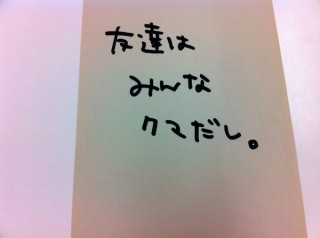 友達は
みんな
クマだし。